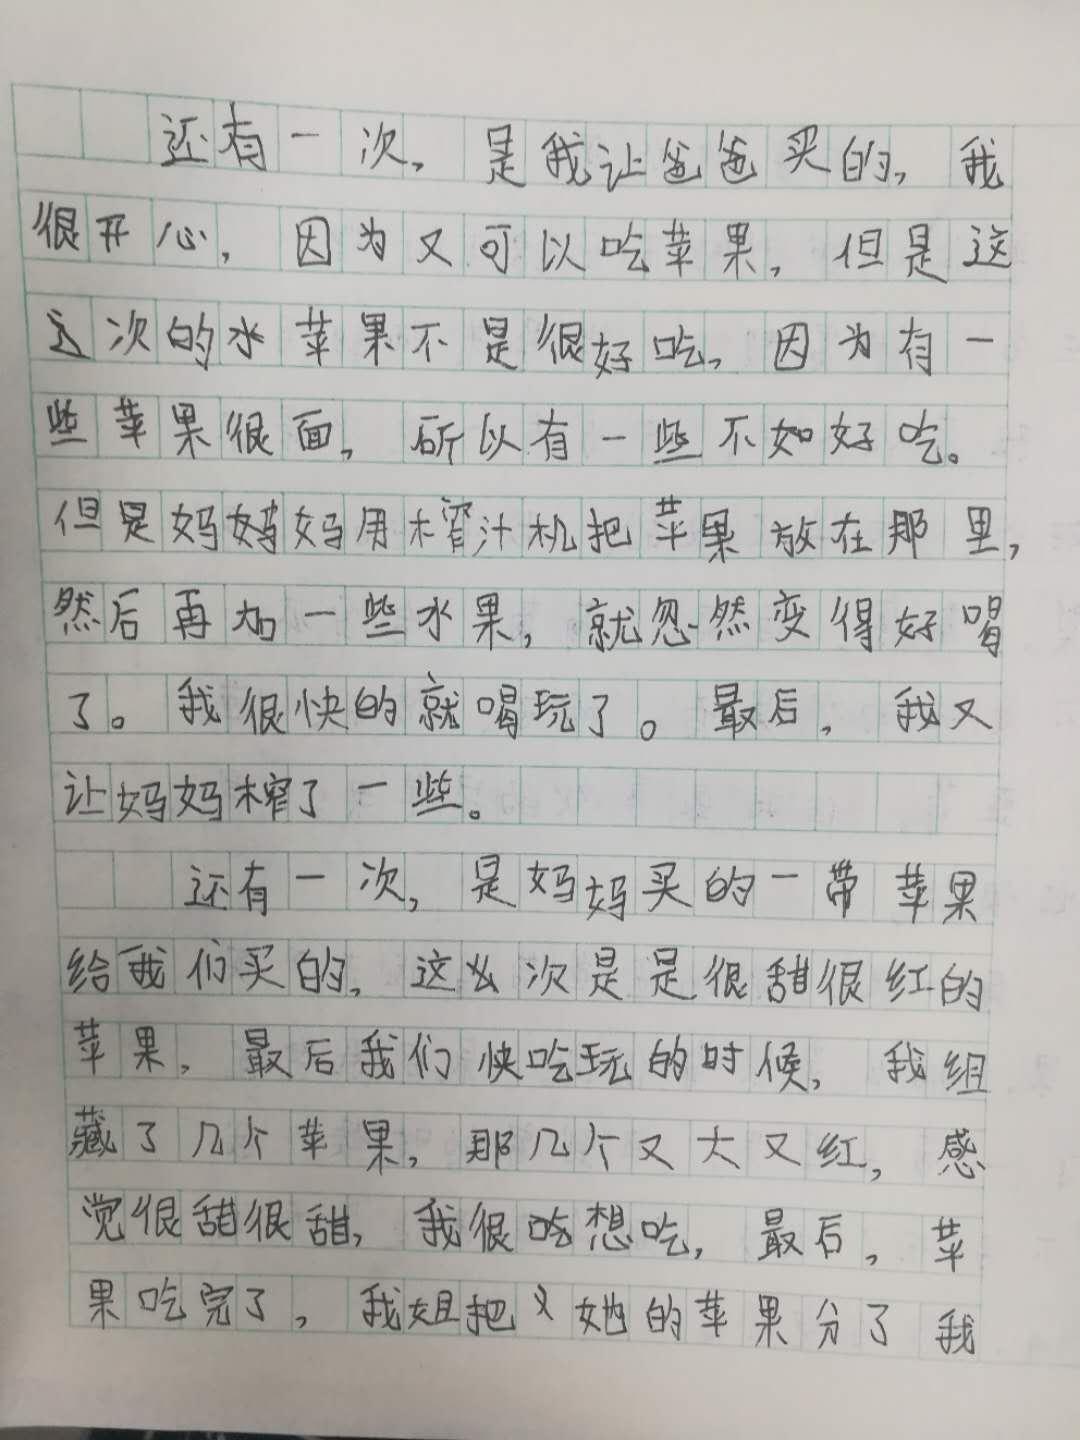 还有一次，是我让爸爸买的，我
很开心，因为又可以吃苹果，但是这
这次的水苹果不是很好吃，因为有一
些苹果很面，所以有一些不如好吃。
但是妈妈妈用榨汁机把苹果放在那里，
然后再加一些水果，就忽然变得好喝
了。我很快的就喝玩了。最后，我又
让妈妈榨了一些。
还有一次，是妈妈买的一带苹果
给我们买的，这么次是是很甜很红的
苹果，最后我们快吃玩的时候，我组
藏了几个苹果，那几个又大又红，感
觉很甜很甜，我很吃想吃，最后，苹
果吃完了，我姐把她的苹果分了我